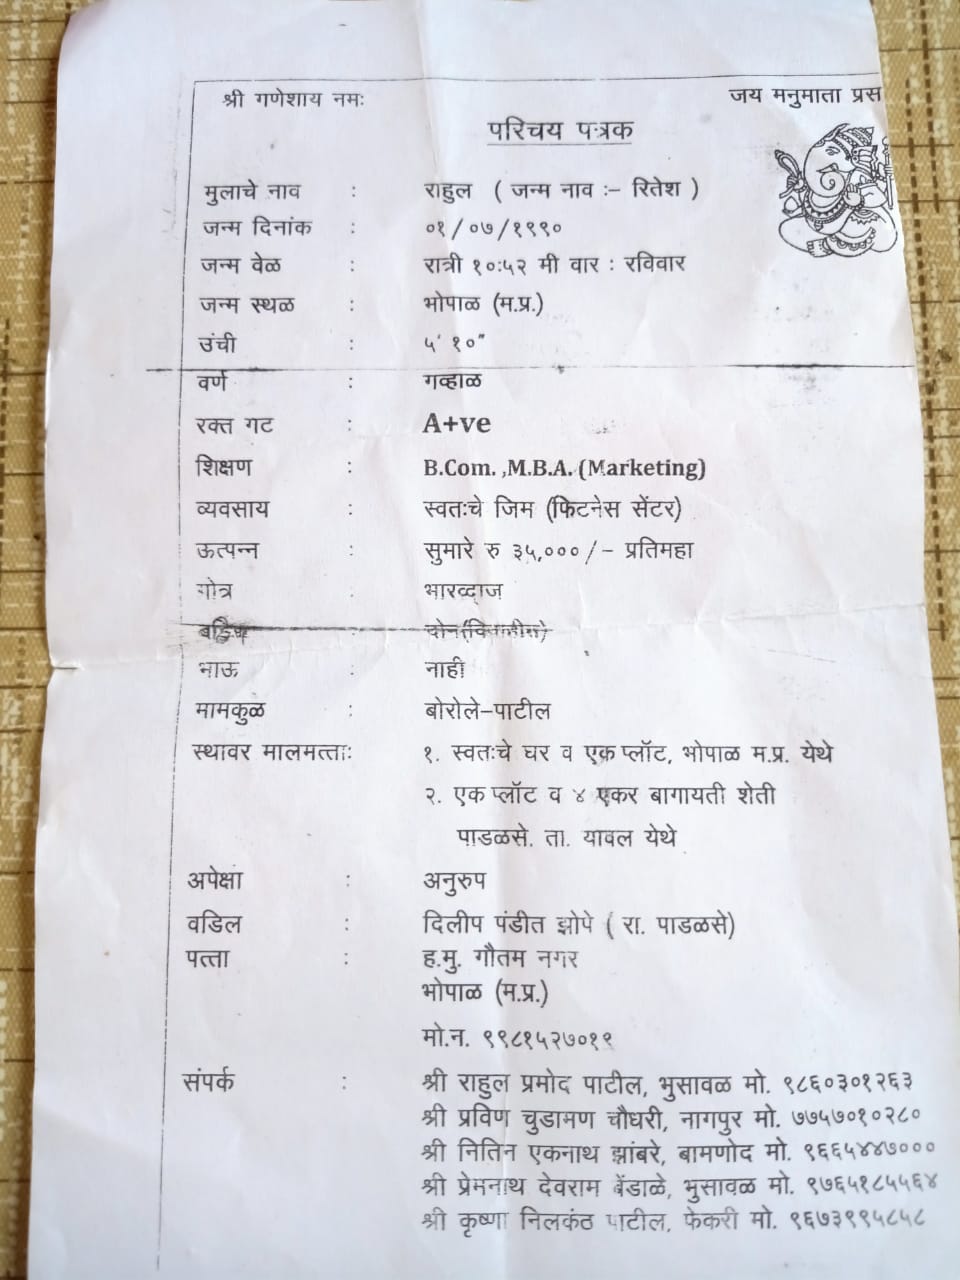 श्री गणेशाय नमः
जय मनुमाता प्रस
परिचय पत्रक
मुलाचे नाव : राहुल ( जन्म नाव :– रितेश )
जन्म दिनांक : ०१/०७/१९९०
जन्म वेळ : रात्री १०:५२ मी वार : रविवार
जन्म स्थळ : भोपाळ (म.प्र.)
उंची : ५' १०"
वर्ण : गव्हाळ
रक्त गट : A+ve
शिक्षण : B.Com. ,M.B.A. (Marketing)
व्यवसाय : स्वतःचे जिम (फिटनेस सेंटर)
ऊत्पन्न : सुमारे रु ३५,०००/– प्रतिमहा
गोत्र : भारव्दाज
भाऊ : नाही
मामकुळ : बोरोले–पाटील
स्थावर मालमत्ताः १. स्वतःचे घर व एक प्लॉट, भोपाळ म.प्र. येथे
२. एक प्लॉट व ४ एकर बागायती शेती
पाडळसे. ता. यावल येथे
अपेक्षा : अनुरुप
वडिल : दिलीप पंडीत झोपे ( रा. पाडळसे)
पत्ता : ह.मु. गौतम नगर
भोपाळ (म.प्र.)
मो.न. ९९८१५२७०१९
संपर्क : श्री राहुल प्रमोद पाटील, भुसावळ मो. ९८६०३०१२६३
श्री प्रविण चुडामण चौधरी, नागपुर मो. ७७५७०१०२८०
श्री नितिन एकनाथ झांबरे, बामणोद मो. ९६६५४४७०००
श्री प्रेमनाथ देवराम बेंडाळे, भुसावळ मो. ९७६५१८५५६४
श्री कृष्णा निलकंठ पाटील, फेकरी मो. ९६७३९९५८५८